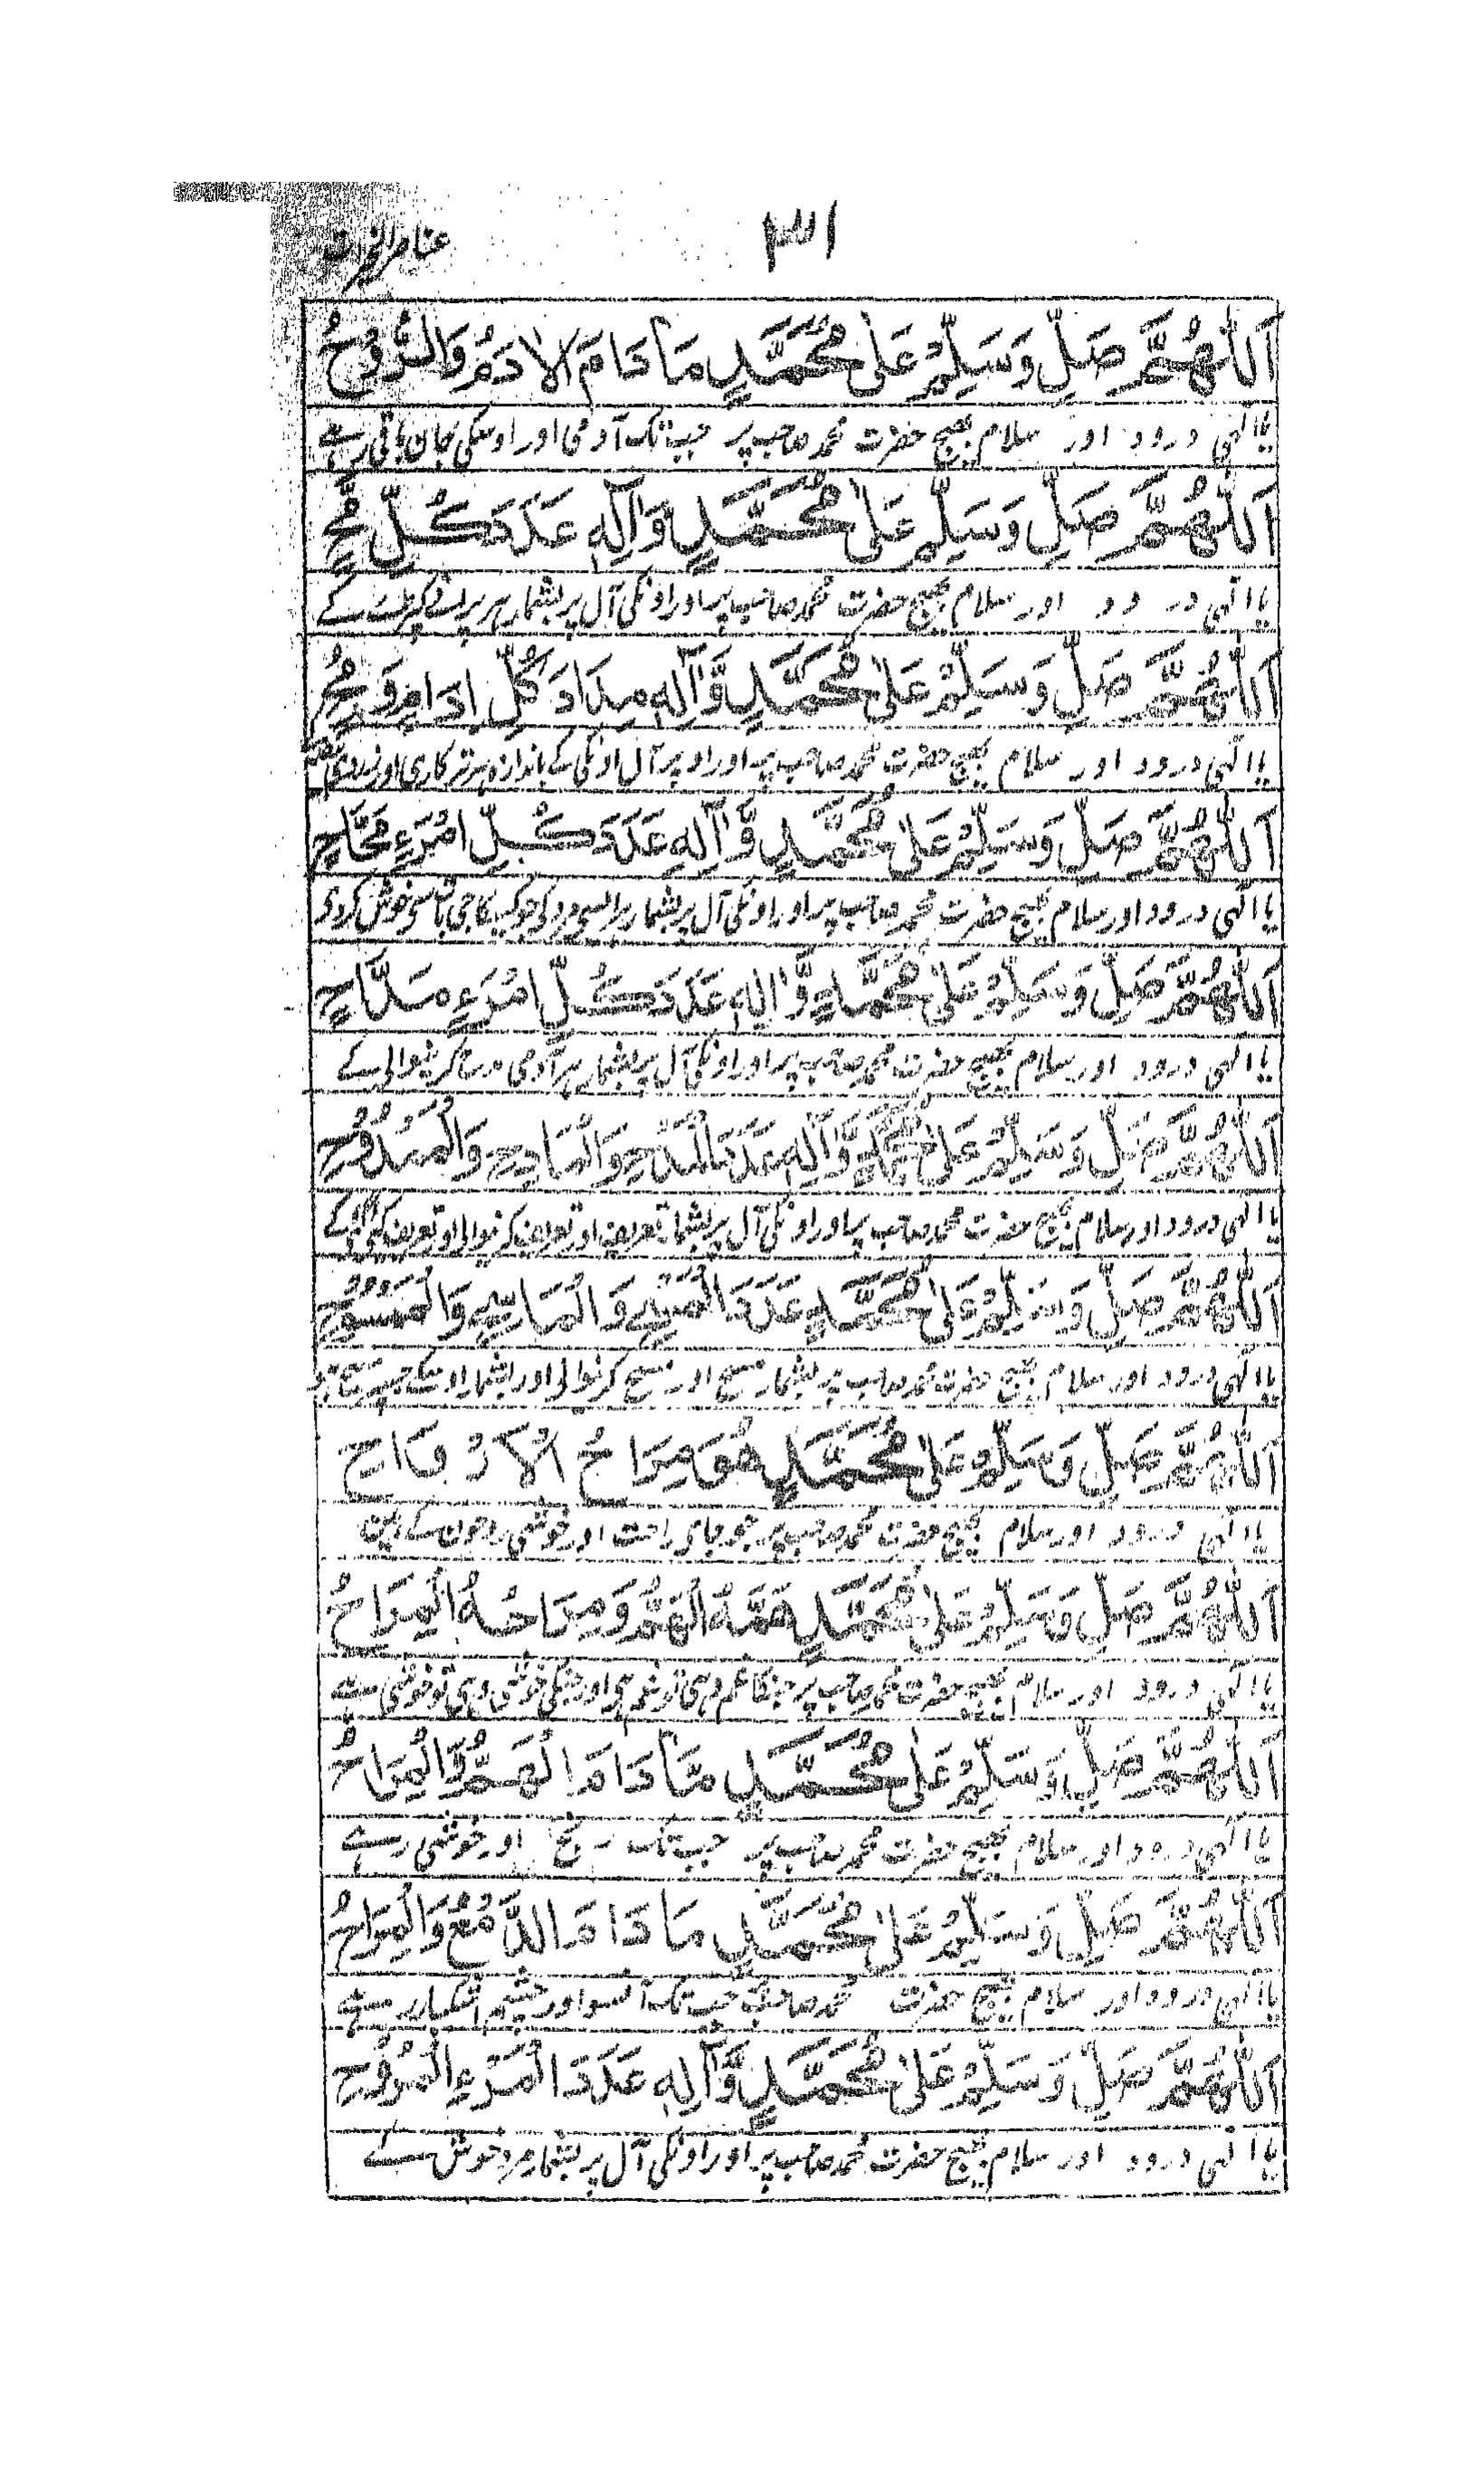 ۱۳۱ عناصر الخیرات
اَللّٰهُمَّ صَلِّ وَسَلِّمْ عَلٰى مُحَمَّدٍ مَا دَامَ الْاٰدَمُ وَالرُّوْحُ
یا الٰہی درود اور سلام بھیج حضرت محمد صاحب پر جب تک آدمی اور اوسکی جان باقی رہے
اَللّٰهُمَّ صَلِّ وَسَلِّمْ عَلٰى مُحَمَّدٍ وَّاٰلِهٖ عَدَدَ كُلِّ مُحٍّ
یا الٰہی درود اور سلام بھیج حضرت محمد صاحب پر اور اونکی آل پر بشمار ہر پرانے کپڑے کے
اَللّٰهُمَّ صَلِّ وَسَلِّمْ عَلٰى مُحَمَّدٍ وَّاٰلِهٖ مِدَادَ كُلِّ اِدَامٍ وَمُحٍّ
یا الٰہی درود اور سلام بھیج حضرت محمد صاحب پر اور اوپر آل اونکی کے باندازہ ہر ترکاری اور زردی
اَللّٰهُمَّ صَلِّ وَسَلِّمْ عَلٰى مُحَمَّدٍ وَّاٰلِهٖ عَدَدَ كُلِّ امْرَءٍ مَحَّاحٍ
یا الٰہی درود اور سلام بھیج حضرت محمد صاحب پر اور اونکی آل پر بشمار ہر ایسی مرد کی جو کہ کا جی باتسی خوش کردی
اَللّٰهُمَّ صَلِّ وَسَلِّمْ عَلٰى مُحَمَّدٍ وَّاٰلِهٖ عَدَدَ كُلِّ امْرَءٍ مَدَّاحٍ
یا الٰہی درود اور سلام بھیج حضرت محمد صاحب پر اور اونکی آل پر بشمار ہر آدمی مدح کرنیوالی کے
اَللّٰهُمَّ صَلِّ وَسَلِّمْ عَلٰى مُحَمَّدٍ وَّاٰلِهٖ عَدَدَ الْمَدْحِ وَالْمَادِحِ وَالْمَمْدُوْحِ
یا الٰہی درود اور سلام بھیج حضرت محمد صاحب پر اور اونکی آل پر بشمار تعریف اور تعریف کرنیوالی اور تعریف کے
اَللّٰهُمَّ صَلِّ وَسَلِّمْ عَلٰى مُحَمَّدٍ عَدَدَ الْمَسْحِ وَالْمَاسِحِ وَالْمَمْسُوْحِ
یا الٰہی درود اور سلام بھیج حضرت محمد صاحب پر بشمار مسح اور مسح کرنیوالی اور بشمار اوسکے
اَللّٰهُمَّ صَلِّ وَسَلِّمْ عَلٰى مُحَمَّدٍ هُوَ مِرَاحُ الْاَرْوَاحِ
یا الٰہی درود اور سلام بھیج حضرت محمد صاحب پر جو جای راحت اور خوشی روحون کے ہین
اَللّٰهُمَّ صَلِّ وَسَلِّمْ عَلٰى مُحَمَّدٍ هَمُّهُ الْهَمُّ وَمِرَاحُهُ الْمِرَاحُ
یا الٰہی درود اور سلام بھیج حضرت محمد صاحب پر جنکا غم وہی تو غم ہی اور جنکی خوشی وہی تو خوشی ہے
اَللّٰهُمَّ صَلِّ وَسَلِّمْ عَلٰى مُحَمَّدٍ مَّا دَامَ الْهَمُّ وَالْمِرَاحُ
یا الٰہی درود اور سلام بھیج حضرت محمد صاحب پر جب تک رنج اور خوشی رہے
اَللّٰهُمَّ صَلِّ وَسَلِّمْ عَلٰى مُحَمَّدٍ مَا دَامَ الدَّمْعُ وَالْمِرَاحُ
یا الٰہی درود اور سلام بھیج حضرت محمد صاحب پر جب تک آنسو اور چشم اشکبار رہے
اَللّٰهُمَّ صَلِّ وَسَلِّمْ عَلٰى مُحَمَّدٍ وَّاٰلِهٖ عَدَدَ الْمَرْءِ الْمَرُوْحِ
یا الٰہی درود اور سلام بھیج حضرت محمد صاحب پر اور اونکی آل پر بشمار مرد خوش کے